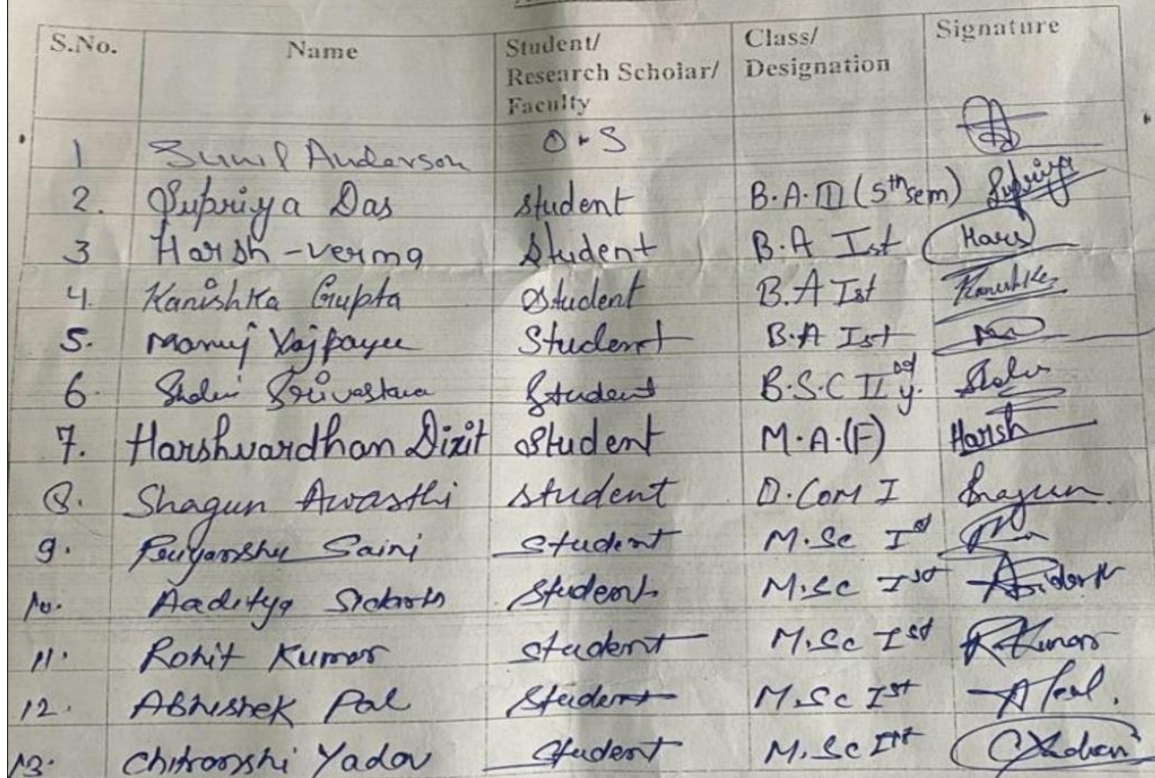 S.No. Name Student/ Research Scholar/ Faculty Class/ Designation Signature
1 Sunil Anderson O.S
2. Supriya Das student B.A.III (5th sem) Supriya
3 Harsh-verma Student B.A Ist Hars
4. Kanishka Gupta Student B.A Ist Kanishka
5. Manuj Vajpayee Student B.A Ist
6. Srivastava Student B.S.C II y.
7. Harshvardhan Dixit Student M.A.(F) Harsh
8. Shagun Awasthi student D.Com I Shagun
9. Priyanshu Saini Student M.Sc Ist
10. Aaditya Student M.Sc Ist
11. Rohit Kumar Student M.Sc Ist RKumar
12. Abhishek Pal Student M.Sc Ist APal.
13. Chitranshi Yadav Student M.Sc Ist